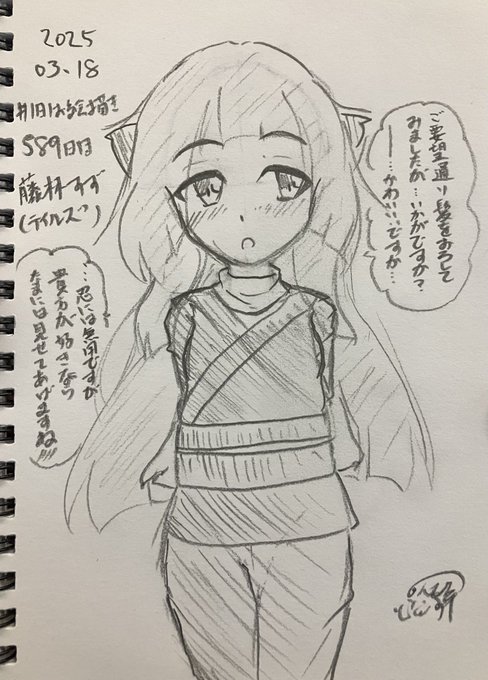 2025
03.18
#1日1お絵描き
589日目
藤林すず
(テイルズ)
ご要望通り髪をおろして
みましたが…いかがですか?
…かわいいですか…
…忍には無用ですが
貴方が好きなら
たまには見せてあげますね!!!!